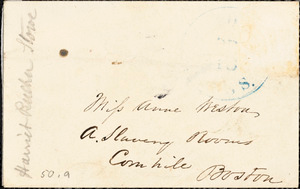 Harriet Beecher Stowe
S.
Miss Anne Weston
A. Slavery Rooms
Cornhill
Boston
50.9